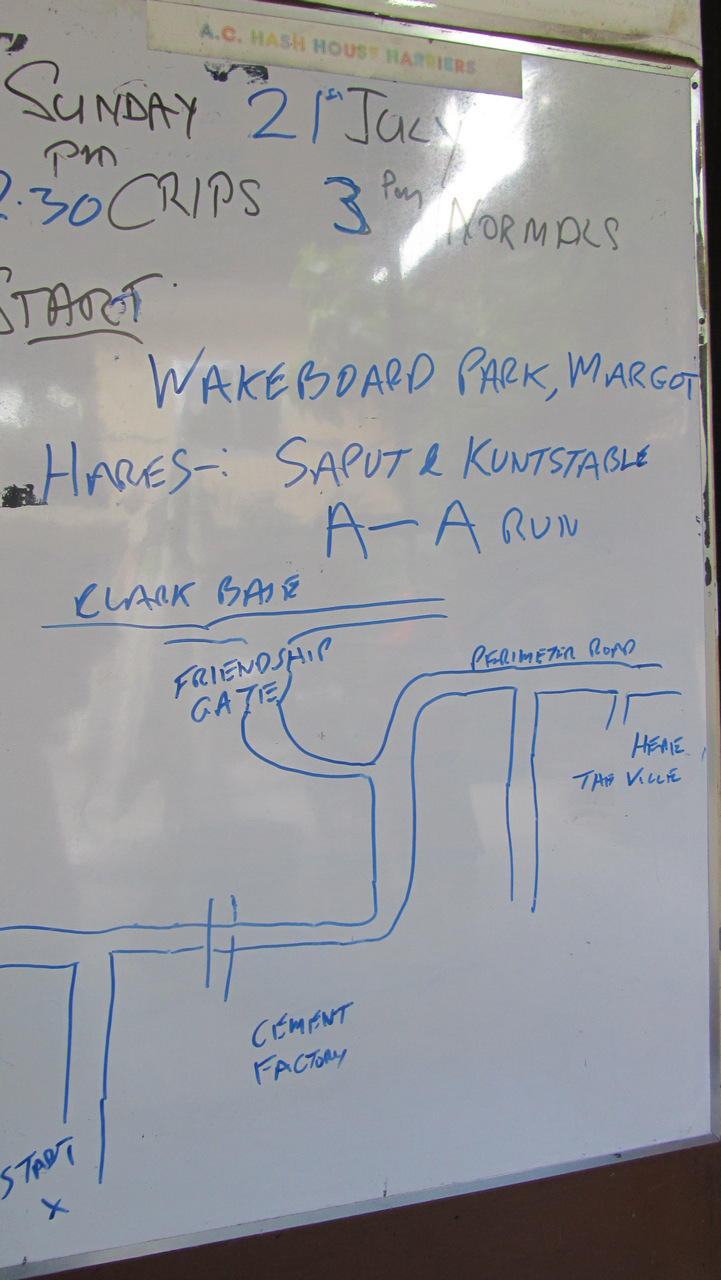 A.C. HASH HOUSE HARRIERS
SUNDAY 21st JULY
pm
2.30 CRIPS 3 Pm NORMALS
START
WAKEBOARD PARK, MARGOT
HARES-: SAPUT & KUNTSTABLE
A-A RUN
CLARK BASE
FRIENDSHIP
GATE
PERIMETER ROAD
HERE
THE VILLE
CEMENT
FACTORY
START
X